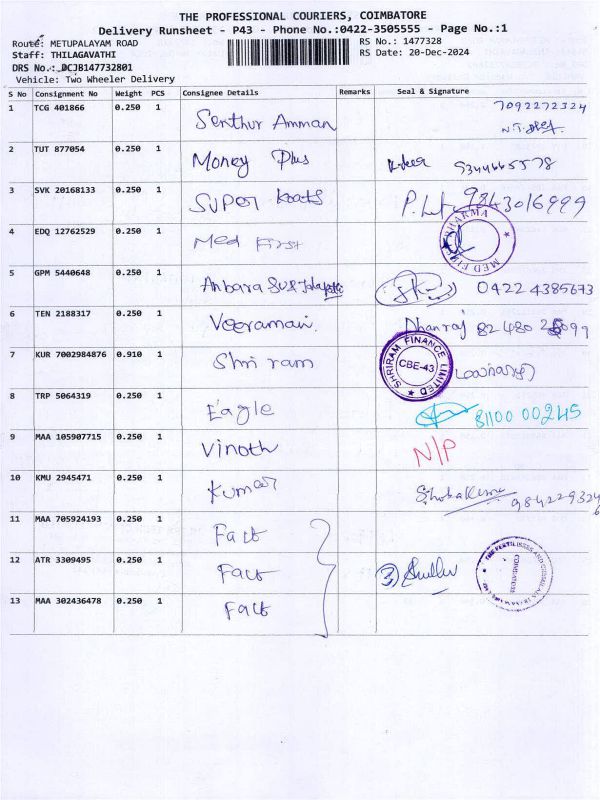 THE PROFESSIONAL COURIERS, COIMBATORE
Delivery Runsheet - P43 - Phone No.:0422-3505555 - Page No.:1
Route: METUPALAYAM ROAD
RS No.: 1477328
Staff: THILAGAVATHI
RS Date: 20-Dec-2024
DRS No.: DCJB147732801
Vehicle: Two Wheeler Delivery
S No Consignment No Weight PCS Consignee Details Remarks Seal & Signature
1 TCG 401866 0.250 1 Senthur Amman 7092272324
2 TUT 877054 0.250 1 Money Plus 5344665578
3 SVK 20168133 0.250 1 SUPER Koats 9843016999
4 EDQ 12762529 0.250 1 Med First MED FIRST PHARMA
5 GPM 5440648 0.250 1 Anbara 0422 4385673
6 TEN 2188317 0.250 1 Veeramani Dhanraj 82480
7 KUR 7002984876 0.910 1 Shri ram SHRIRAM FINANCE LIMITED CBE-43
8 TRP 5064319 0.250 1 Eagle 81100 00245
9 MAA 105907715 0.250 1 Vinoth N/P
10 KMU 2945471 0.250 1 Kumar
11 MAA 705924193 0.250 1 Fact
12 ATR 3309495 0.250 1 Fact 3
13 MAA 302436478 0.250 1 Fact